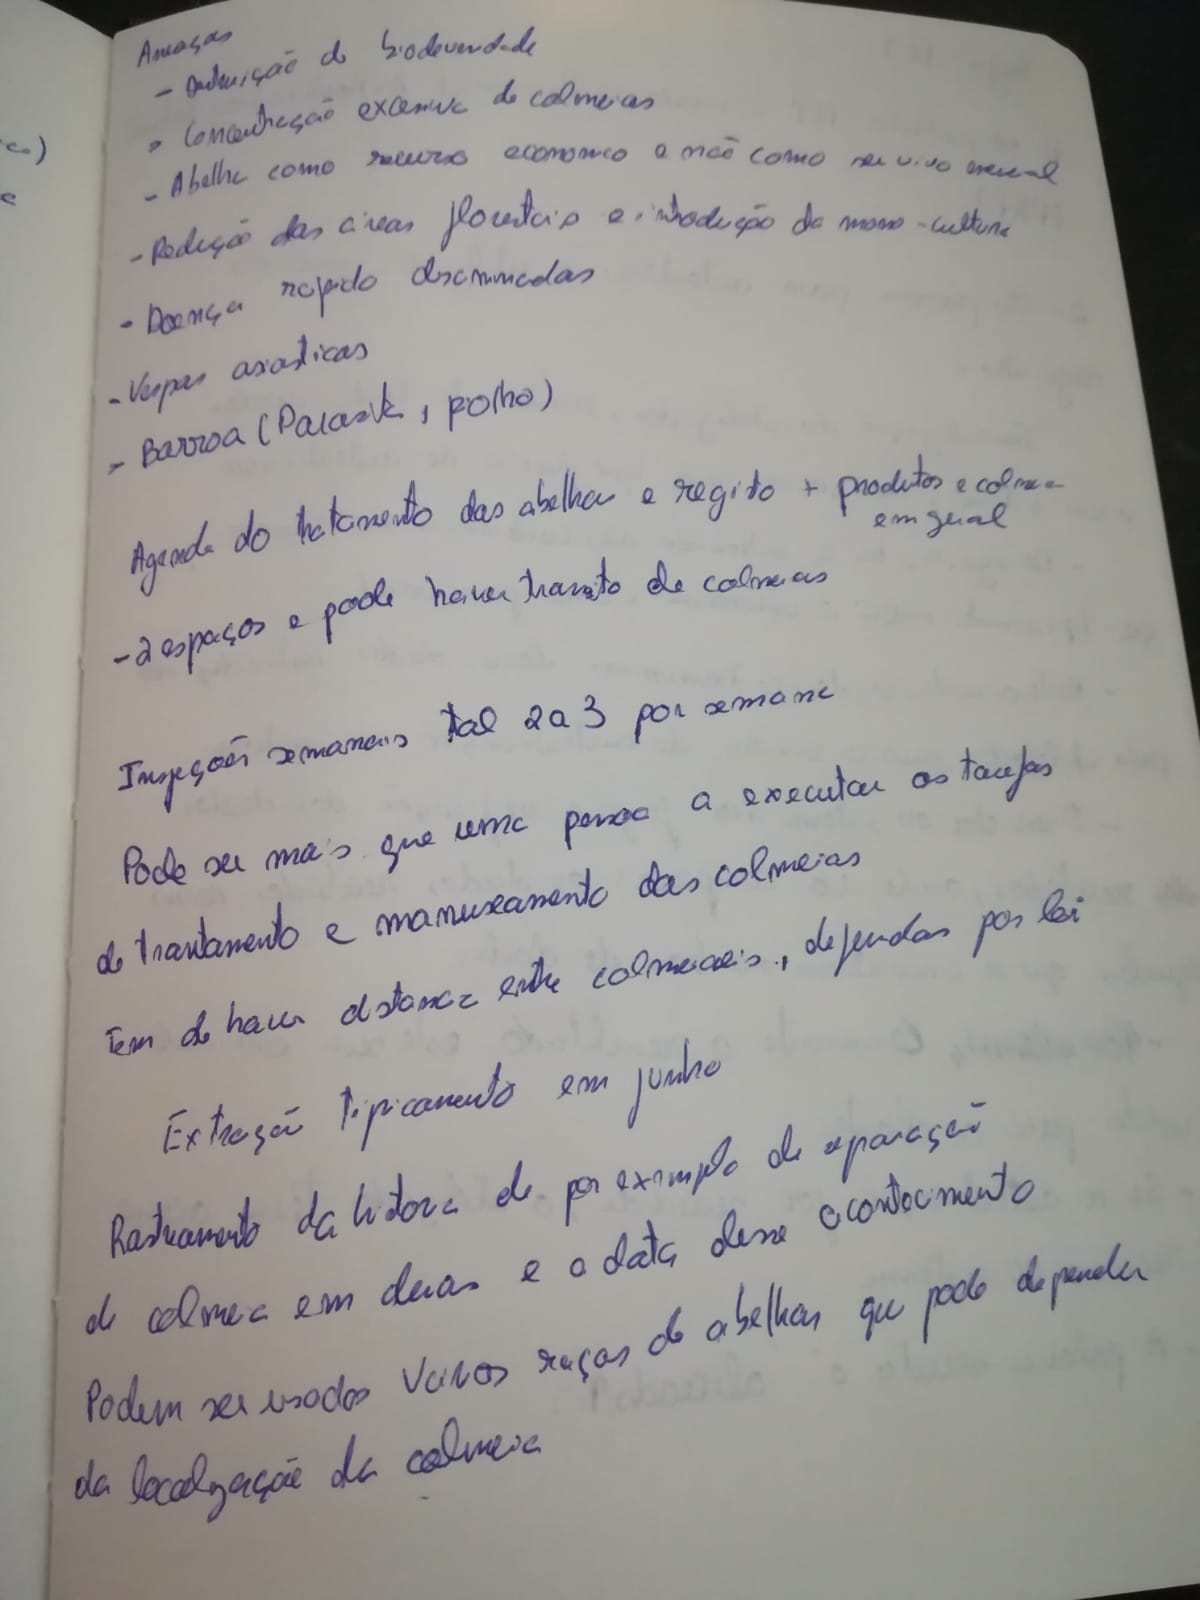 co)
e
Ameaças
- Destruição da biodiversidade
- Concentração excessiva de colmeias
- Abelha como recurso economico e não como ser vivo essencial
- Redução das áreas florestais e introdução da mono-cultura
- Doença rapido disseminadas
- Vespas asiaticas
- Barroa (Parasita, piolho)
Agenda do tratamento das abelhas e registo + produtos e colmeia
em geral
- 2 espaços e pode haver transito de colmeias
Inspeções semanais tal 2 a 3 por semana
Pode ser mais que uma pessoa a executar as tarefas
de trantamento e manuseamento das colmeias
Tem de haver distancia entre colmeiais, definidas por lei
Extração tipicamento em junho
Rastreamento da historia de por exemplo de separação
de colmeia em duas e a data desse acontecimento
Podem ser usados varios raças de abelhas que pode depender
da localização da colmeia